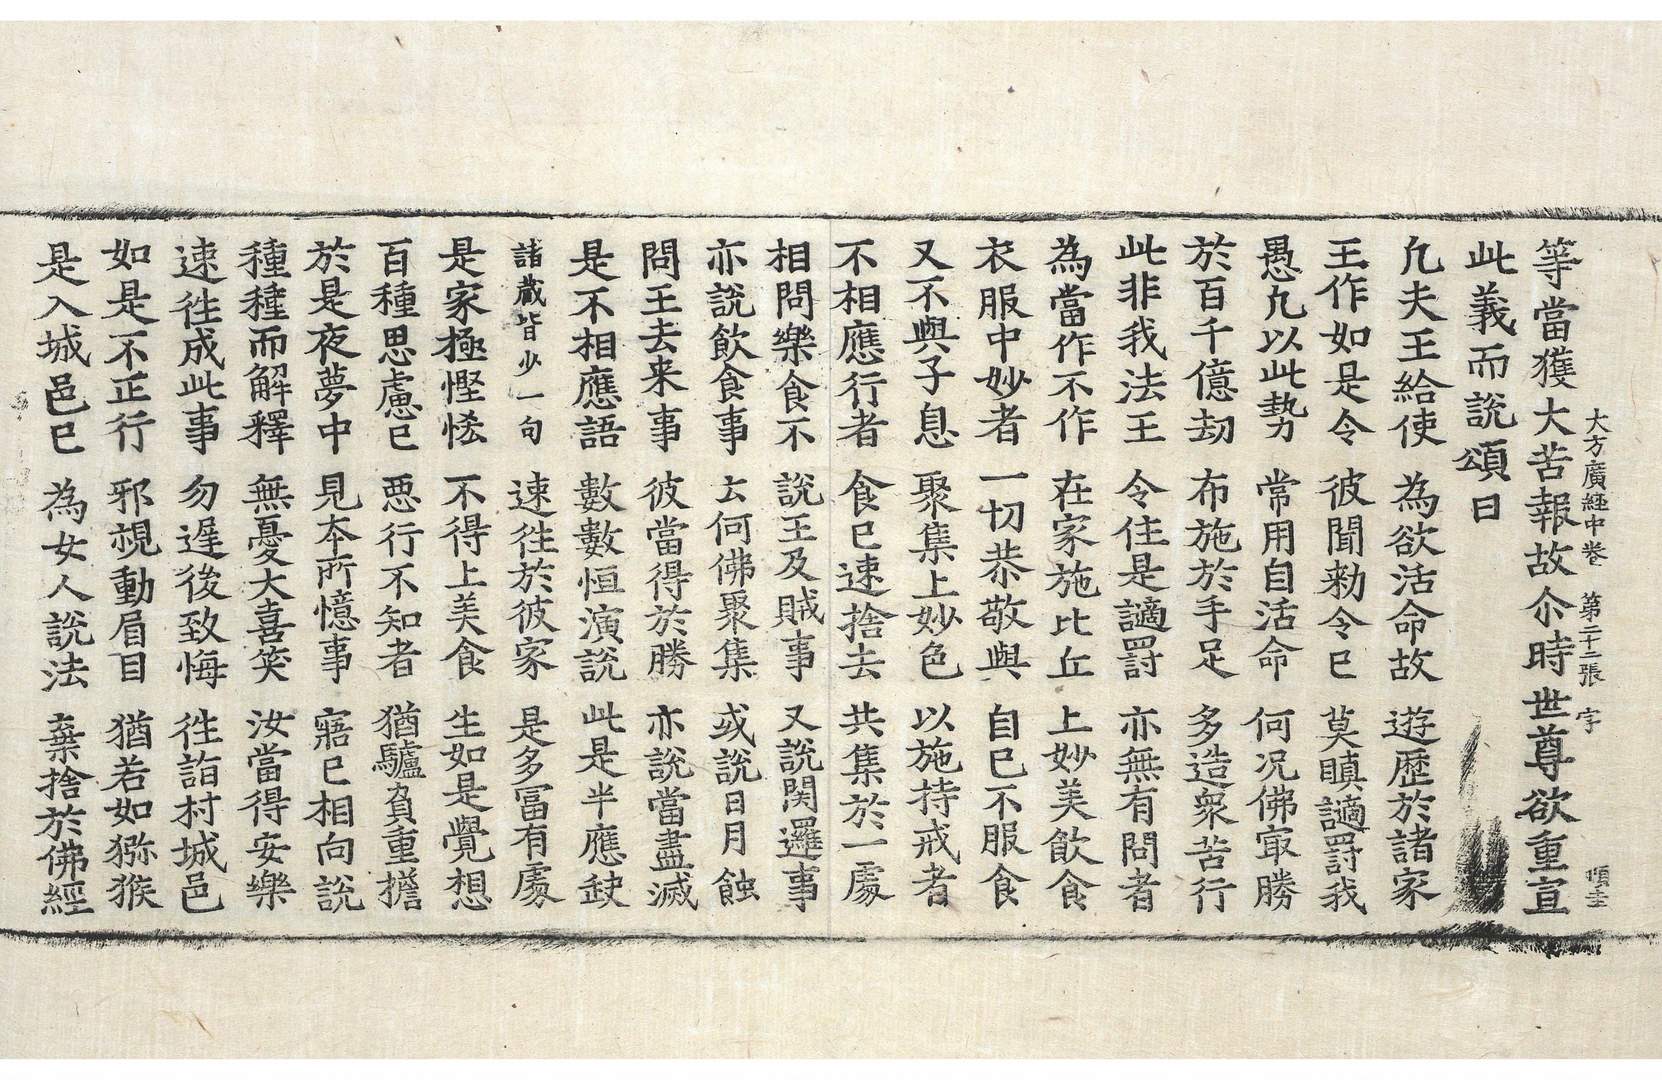 大方廣經中卷 第二十二張 字
等當獲大苦報故尒時世尊欲重宣
此義而說頌曰
凢夫王給使 為欲活命故 遊歷於諸家
王作如是令 彼聞勑令已 莫瞋讁罸我
愚凢以此勢 常用自活命 何况佛㝡勝
於百千億劫 布施於手足 多造衆苦行
此非我法王 令住是讁罸 亦無有問者
為當作不作 在家施比丘 上妙美飲食
衣服中妙者 一切恭敬與 自已不服食
又不與子息 聚集上妙色 以施持戒者
不相應行者 食已速捨去 共集於一處
相問樂食不 說王及賊事 又說閦邏事
亦說飲食事 云何佛聚集 或說日月蝕
問王去来事 彼當得於勝 亦說當盡滅
是不相應語 數數恒演說 此是半應䤥
諸藏皆少一句 速徃於彼家 是多冨有處
是家極慳悋 不得上美食 生如是覺想
百種思慮已 惡行不知者 猶驢負重擔
於是夜夢中 見本所憶事 寤已相向說
種種而解釋 無憂大喜笑 汝當得安樂
速徃成此事 勿遲後致悔 徃詣村城邑
如是不正行 邪視動眉目 猶若如猕猴
是入城邑已 為女人說法 棄捨於佛經